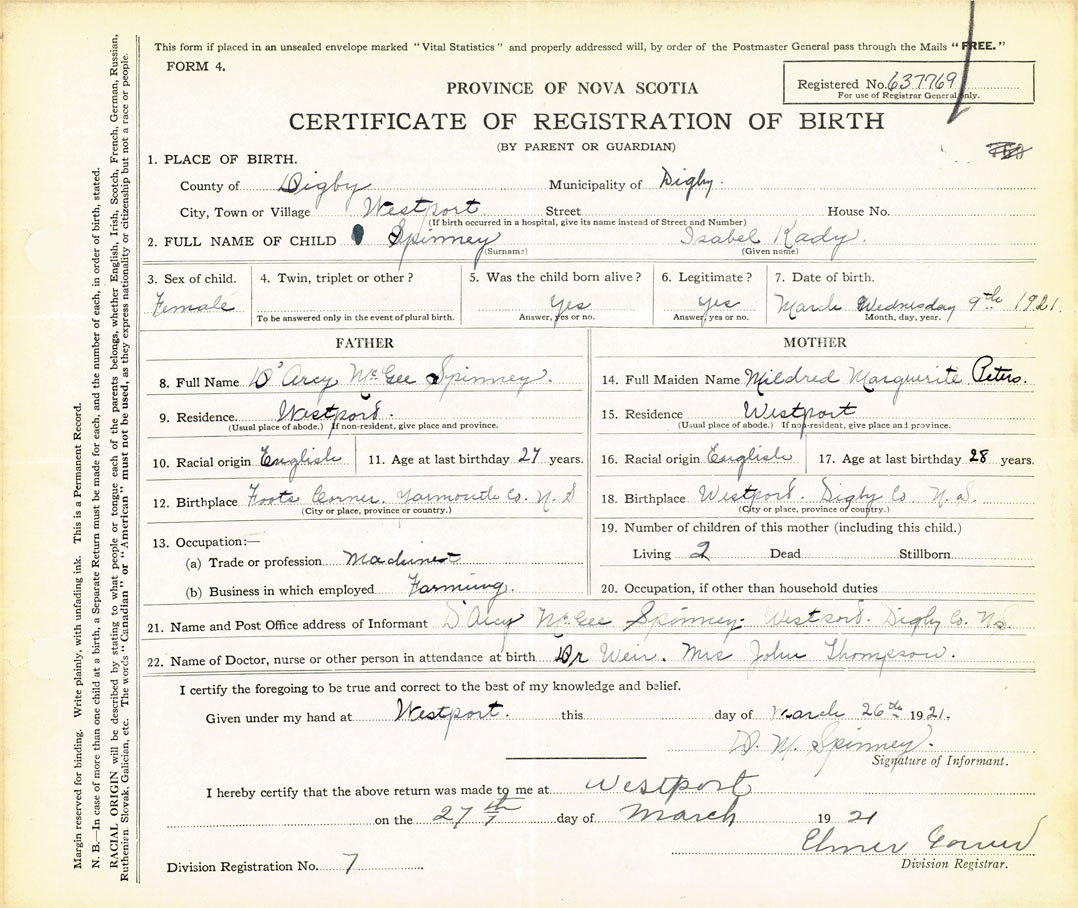 This form if placed in an unsealed envelope marked "Vital Statistics" and properly addressed will, by order of the Postmaster General pass through the Mails "FREE."
FORM 4.
Registered No. 637769
For use of Registrar General only.
PROVINCE OF NOVA SCOTIA
CERTIFICATE OF REGISTRATION OF BIRTH
(BY PARENT OR GUARDIAN)
1. PLACE OF BIRTH.
County of Digby Municipality of Digby.
City, Town or Village Westport Street House No.
(If birth occurred in a hospital, give its name instead of Street and Number)
2. FULL NAME OF CHILD Spinney Isabel Kady.
(Surname) (Given name)
3. Sex of child. 4. Twin, triplet or other? 5. Was the child born alive? 6. Legitimate? 7. Date of birth.
Female Yes Yes March Wednesday 9th 1921.
To be answered only in the event of plural birth. Answer, yes or no. Answer, yes or no. Month, day, year.
FATHER
8. Full Name D'Arcy McGee Spinney.
9. Residence. Westport.
(Usual place of abode.) If non-resident, give place and province.
10. Racial origin English 11. Age at last birthday 27 years.
12. Birthplace Foots Corner. Yarmouth Co. N. S
(City or place, province or country.)
13. Occupation:—
(a) Trade or profession Machinest
(b) Business in which employed Farming.
MOTHER
14. Full Maiden Name Mildred Marguerite Peters.
15. Residence Westport
(Usual place of abode.) If non-resident, give place and province.
16. Racial origin English 17. Age at last birthday 28 years.
18. Birthplace Westport. Digby Co N.S.
(City or place, province or country.)
19. Number of children of this mother (including this child.)
Living 2 Dead Stillborn
20. Occupation, if other than household duties
21. Name and Post Office address of Informant D'Arcy McGee Spinney. Westport. Digby Co. N.S.
22. Name of Doctor, nurse or other person in attendance at birth Dr Weir. Mrs John Thompson.
I certify the foregoing to be true and correct to the best of my knowledge and belief.
Given under my hand at Westport. this day of March 26th 1921.
D. M. Spinney.
Signature of Informant.
I hereby certify that the above return was made to me at Westport
on the 27th day of March 1921
Elmer
Division Registration No. 7 Division Registrar.
Margin reserved for binding. Write plainly, with unfading ink. This is a Permanent Record.
N. B.—In case of more than one child at a birth, a Separate Return must be made for each, and the number of each, in order of birth, stated.
RACIAL ORIGIN will be described by stating to what people or tongue each of the parents belongs, whether English, Irish, Scotch, French, German, Russian,
Ruthenian, Slovak, Galician, etc. The words "Canadian" or "American" must not be used, as they express nationality or citizenship but not a race or people.